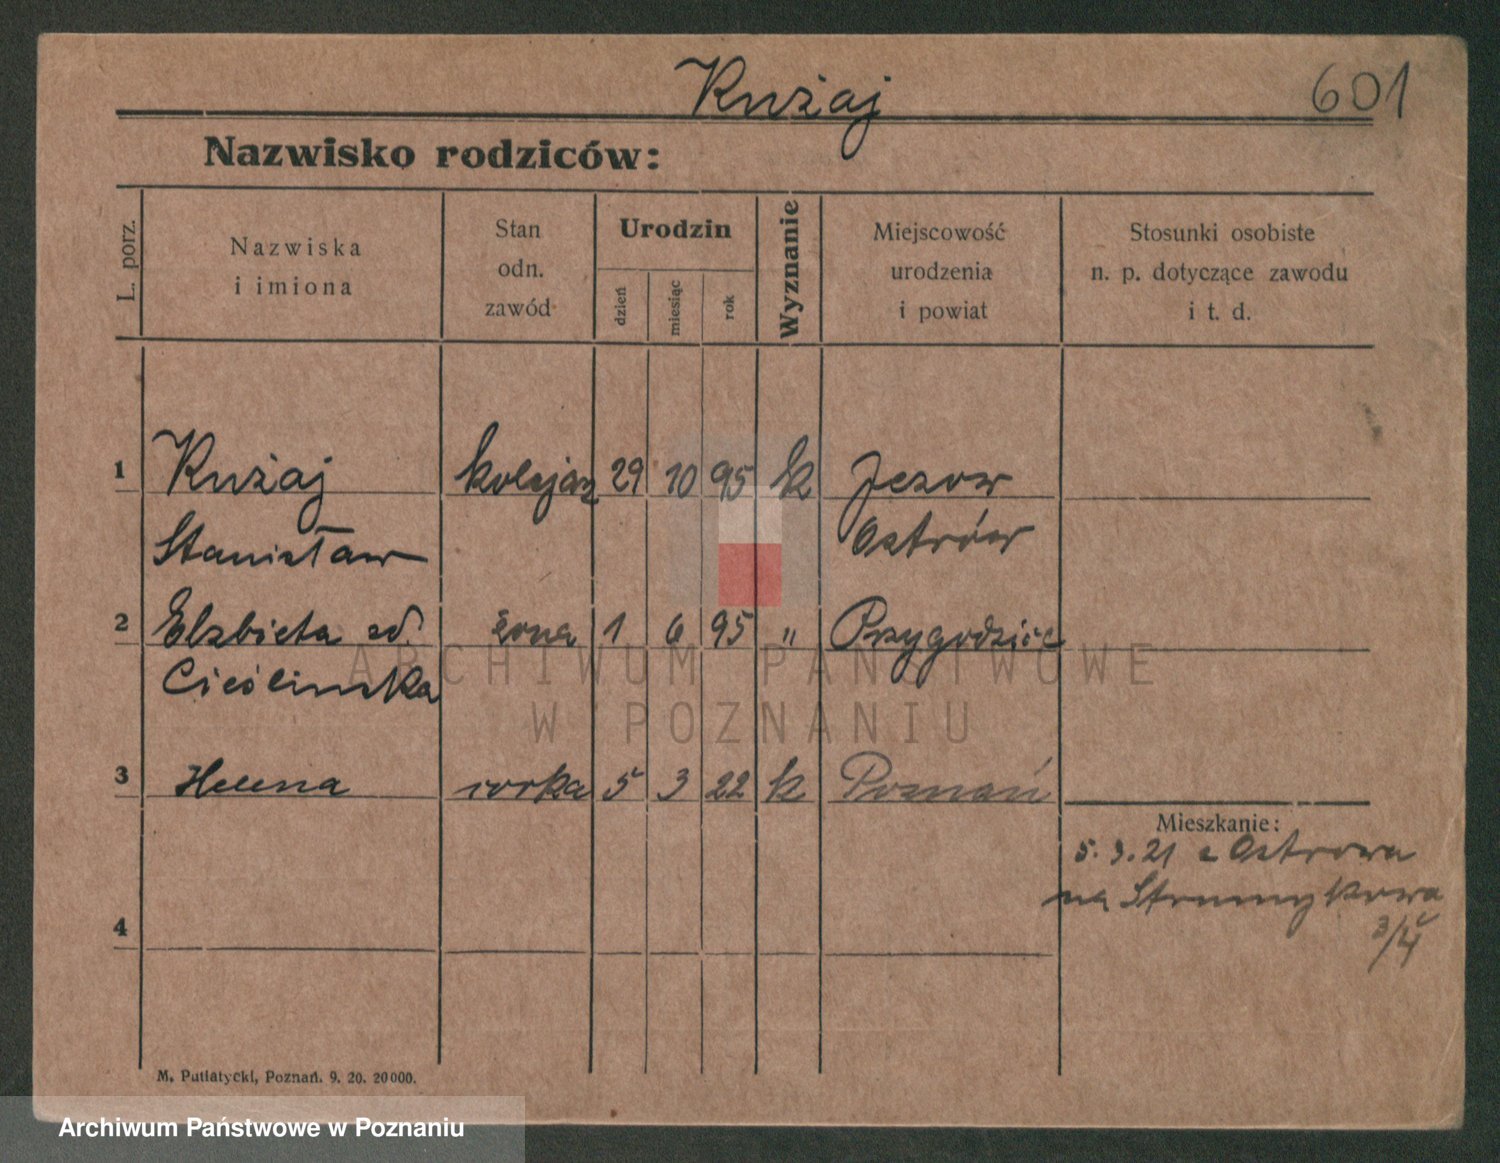 Kużaj
601
Nazwisko rodziców:
L. porz.
Nazwiska
i imiona
Stan
odn.
zawód
Urodzin
dzień
miesiąc
rok
Wyznanie
Miejscowość
urodzenia
i powiat
Stosunki osobiste
n. p. dotyczące zawodu
i t. d.
1 Kużaj kolejarz 29 10 95 k Jezow
Stanisław Ostrów
2 Elzbieta zd. żona 1 6 95 " Przygodzice
Cieślinska
3 Helena corka 5 3 22 k Poznań
Mieszkanie:
5. 9. 21 z Ostrowa
na Strumykowa
3/4
4
M. Putiatycki, Poznań. 9. 20. 20000.
ARCHIWUM PAŃSTWOWE
W POZNANIU
Archiwum Państwowe w Poznaniu